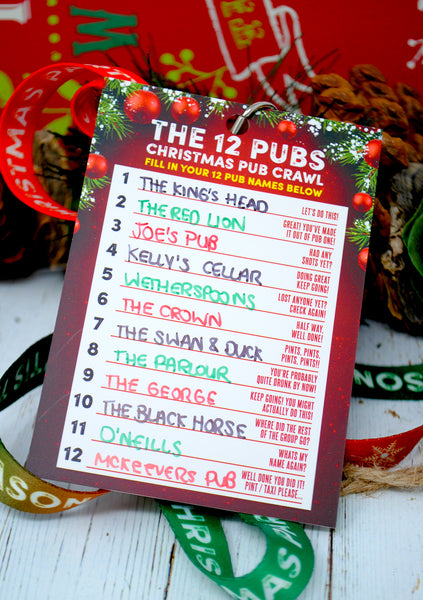 THE 12 PUBS
CHRISTMAS PUB CRAWL
FILL IN YOUR 12 PUB NAMES BELOW
1 THE KING'S HEAD LET'S DO THIS!
2 THE RED LION GREAT! YOU'VE MADE
IT OUT OF PUB ONE!
3 JOE'S PUB HAD ANY
SHOTS YET?
4 KELLY'S CELLAR DOING GREAT
KEEP GOING!
5 WETHERSPOONS LOST ANYONE YET?
CHECK AGAIN!
6 THE CROWN HALF WAY,
WELL DONE!
7 THE SWAN & DUCK PINTS, PINTS,
PINTS, PINTS!!
8 THE PARLOUR YOU'RE PROBABLY
QUITE DRUNK BY NOW!
9 THE GEORGE KEEP GOING! YOU MIGHT
ACTUALLY DO THIS!
10 THE BLACK HORSE WHERE DID THE REST
OF THE GROUP GO?
11 O'NEILLS WHATS MY
NAME AGAIN?
12 MCKEEVERS PUB WELL DONE YOU DID IT!
PINT / TAXI PLEASE...
CHRISTMAS
SEASON
CHRISTMAS